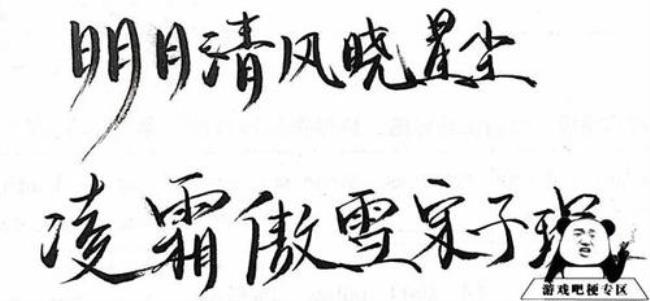 明月清风晓星尘
凌霜傲雪宋子琛
游戏吧梗专区